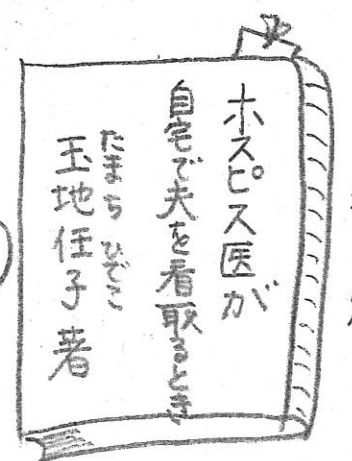 ホスピス医が
自宅で夫を看取るとき
たまち ひでこ
玉地任子 著